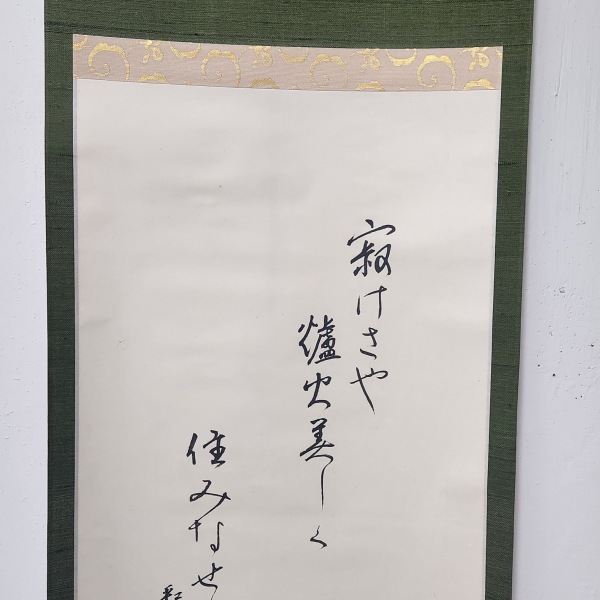 寂けさや
爐火美しく
住みなせ